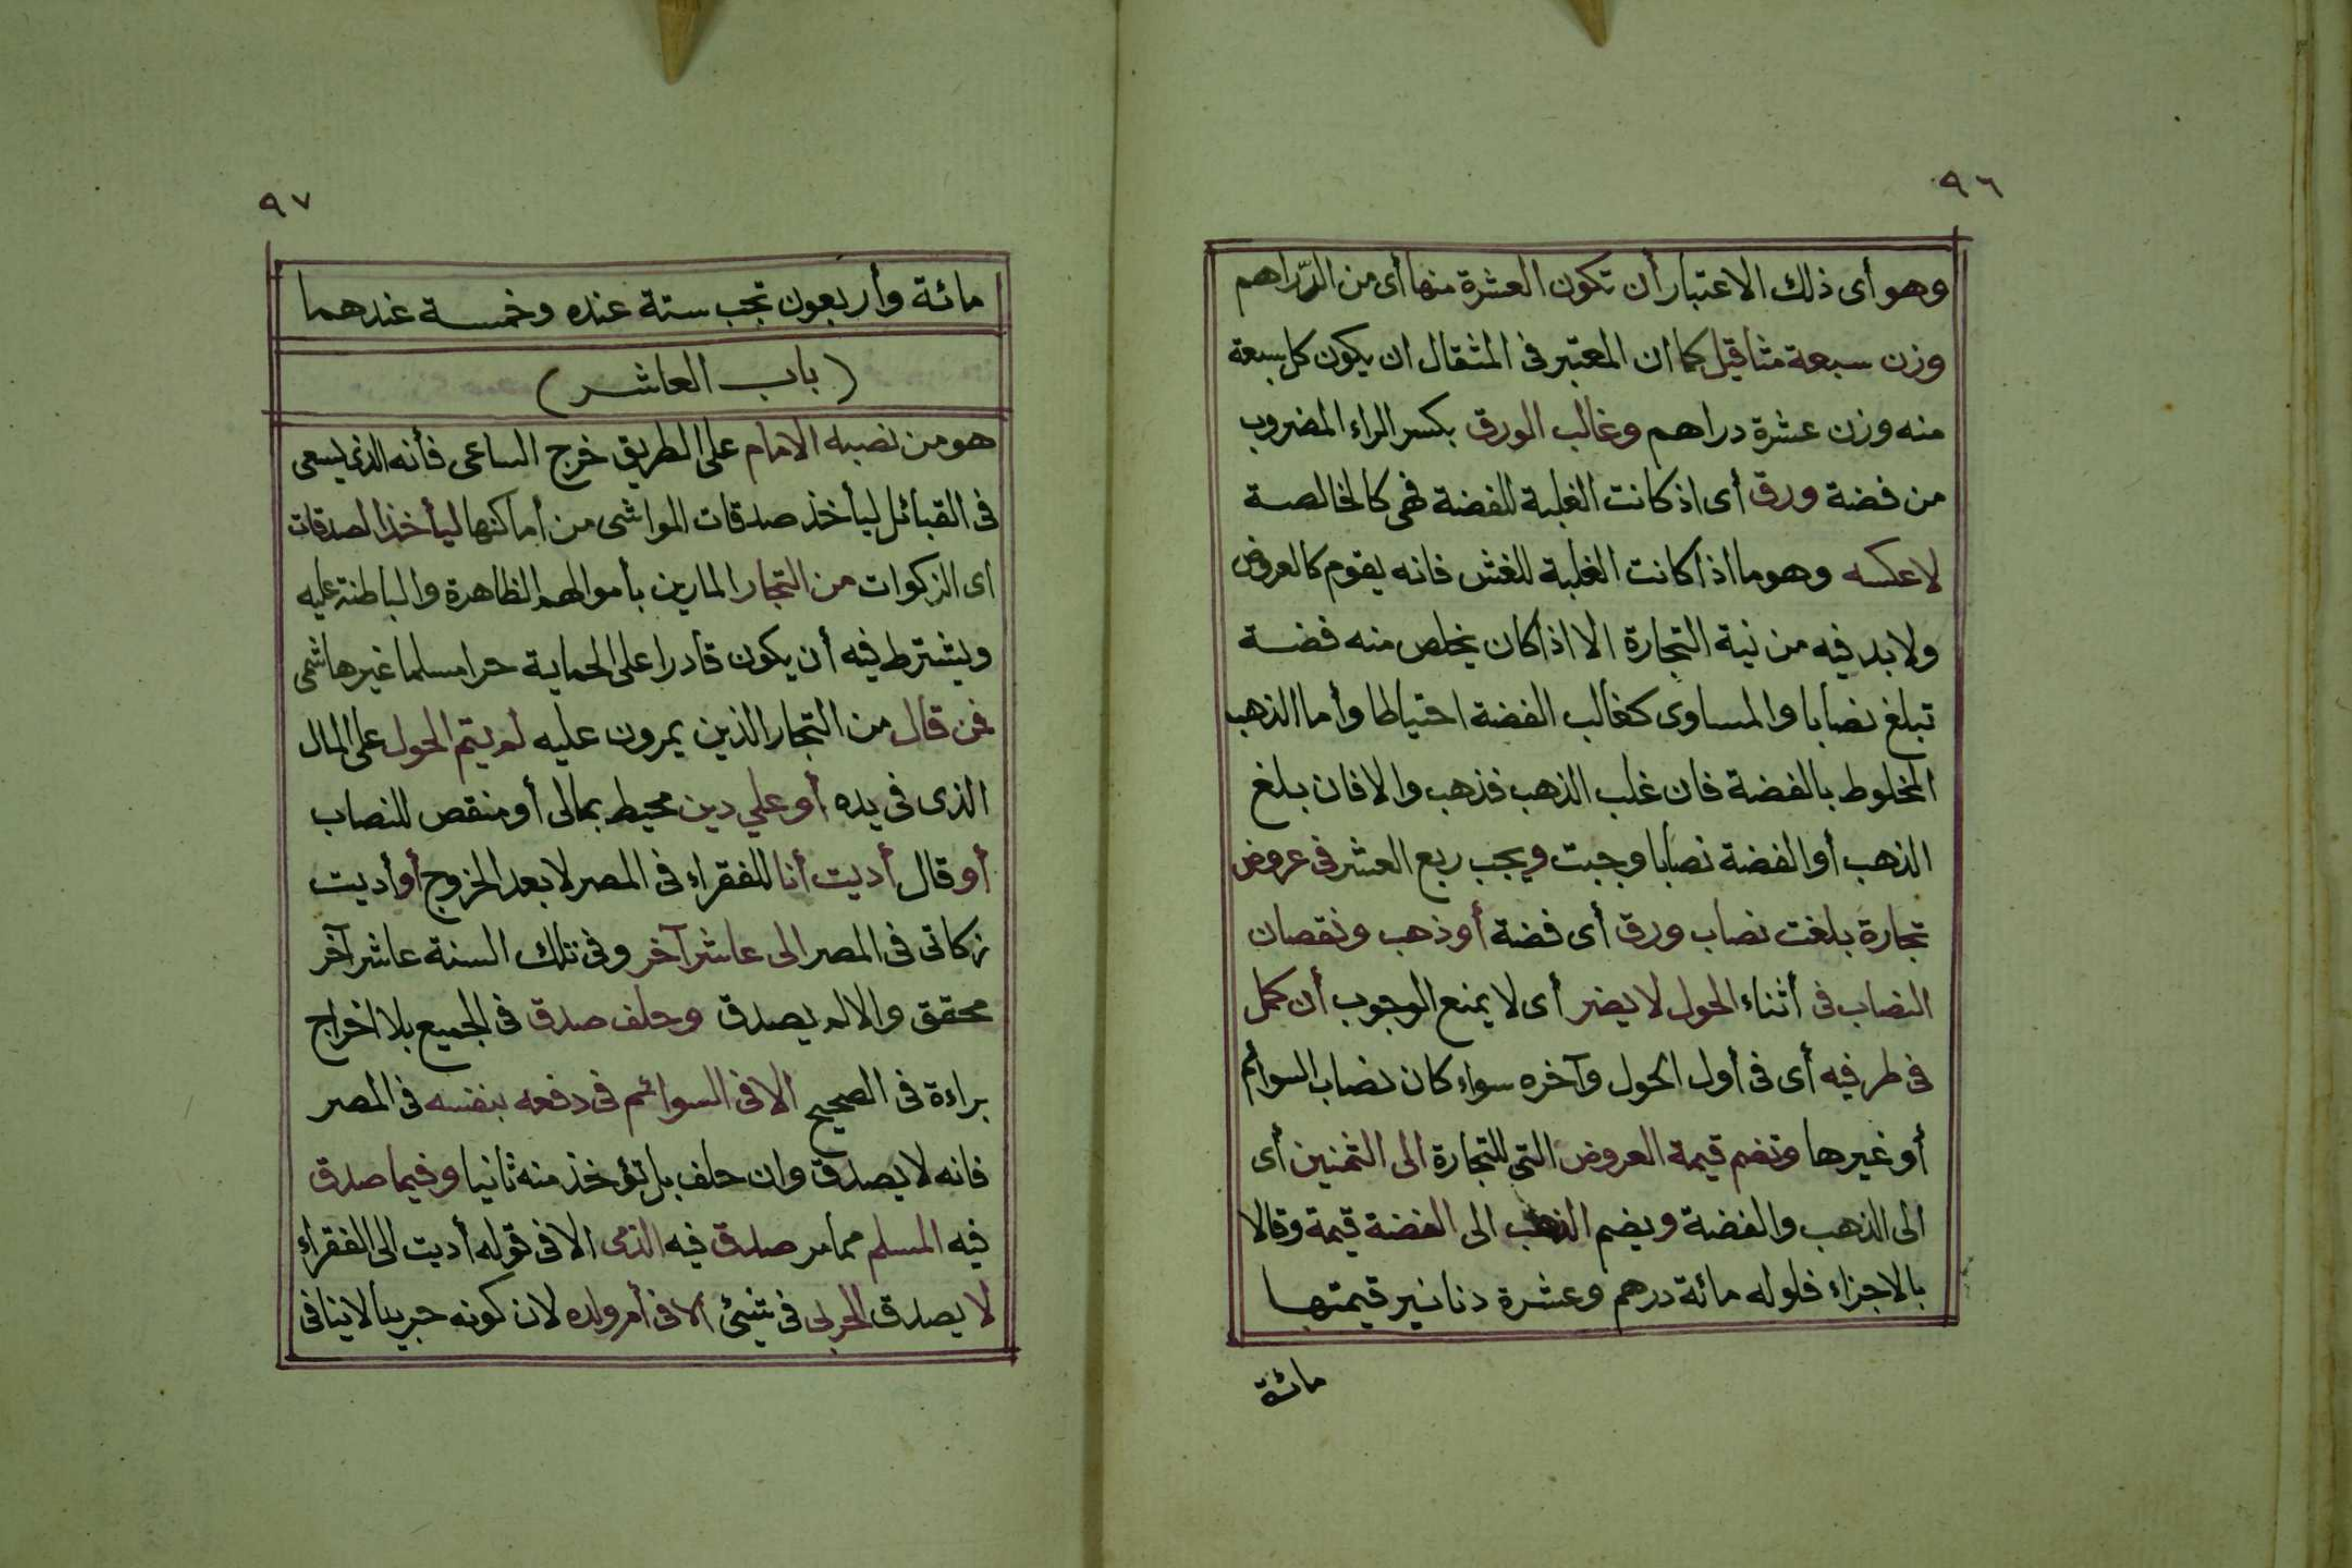 ٩٦
وهو أى ذلك الاعتبار أن تكون العشرة منها أى من الدّراهم
وزن سبعة مثاقيل كما ان المعتبر فى المثقال ان يكون كل سبعة
منه وزن عشرة دراهم وغالب الورق بكسر الراء المضروب
من فضة ورق أى اذ كانت الغلبة للفضة فهى كالخالصة
لاعكسه وهو ما اذا كانت الغلبة للغش فانه يقوم كالعروض
ولا بد فيه من نية التجارة الا اذا كان يخلص منه فضة
تبلغ نصابا والمساوى كغالب الفضة احتياطا وأما الذهب
المخلوط بالفضة فان غلب الذهب فذهب والا فان بلغ
الذهب أو الفضة نصابا وجبت ويجب ربع العشر فى عروض
تجارة بلغت نصاب ورق أى فضة أو ذهب ونقصان
النصاب فى أثناء الحول لا يضر أى لا يمنع الوجوب أن كمل
فى طرفيه أى فى أول الحول وآخره سواء كان نصاب السوائم
أو غيرها وتضم قيمة العروض التى للتجارة الى الثمنين أى
الى الذهب والفضة ويضم الذهب الى الفضة قيمة وقالا
بالاجزاء فلو له مائة درهم وعشرة دنانير قيمتها
مائة
٩٧
مائة وأربعون تجب ستة عنده وخمسة عندهما
(باب العاشر)
هو من نصبه الامام على الطريق خرج الساعى فأنه الذى يسعى
فى القبائل ليأخذ صدقات المواشى من أماكنها ليأخذ الصدقات
اى الزكوات من التجار المارين بأموالهم الظاهرة والباطنة عليه
ويشترط فيه أن يكون قادرا على الحماية حرا مسلما غير هاشمى
فمن قال من التجار الذين يمرون عليه لم يتم الحول على المال
الذى فى يده أو علي دين محيط بمالى أو منقص للنصاب
أو قال أديت أنا للفقراء فى المصر لا بعد الخروج أو أديت
زكاتى فى المصر الى عاشر آخر وفى تلك السنة عاشر آخر
محقق والا لم يصدق وحلف صدق فى الجميع بلا اخراج
براءة فى الصحيح الا فى السوائم فى دفعه بنفسه فى المصر
فانه لا يصدق وان حلف بل تؤخذ منه ثانيا وفيما صدق
فيه المسلم مما مر صدق فيه الذمى الا فى قوله أديت الى الفقراء
لا يصدق الحربى فى شئ الا فى أم ولده لان كونه حربيا لا ينافى